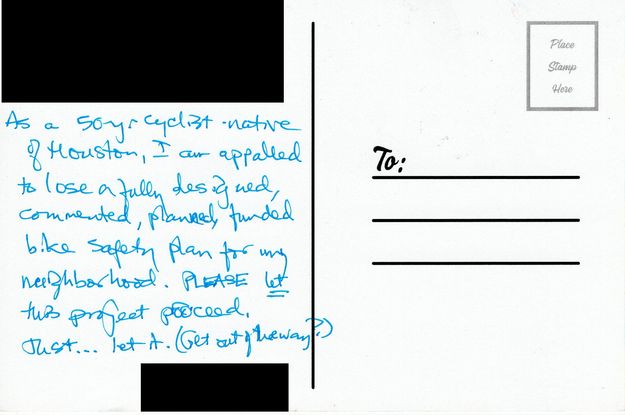 As a 50-yr cyclist - native
of Houston, I am appalled
to lose a fully designed,
commented, planned, funded
bike safety plan for my
neighborhood. PLEASE let
this project proceed.
Just... let it. (Get out of the way?)
Place
Stamp
Here
To: